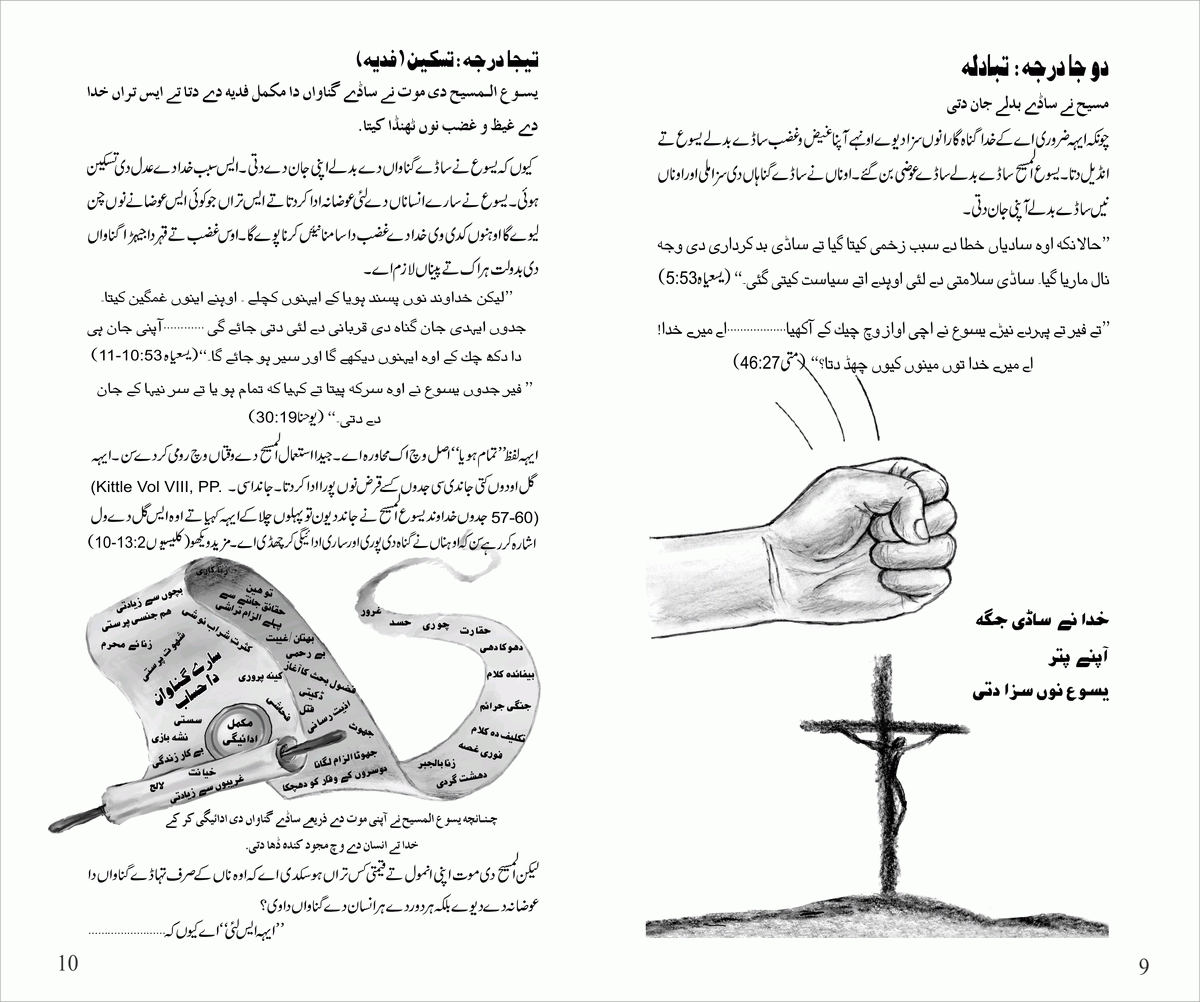 دوجا درجہ : تبادلہ
مسیح نے ساڈے بدلے جان دتی
چونکہ ایہہ ضروری اے کے خدا گناہ گارا نوں سزا دیوے اونہے آپنا غیض و غضب ساڈے بدلے یسوع تے
انڈیل دتا۔ یسوع المسیح ساڈے بدلے ساڈے عوضی بن گئے۔ اوناں نے ساڈے گناہاں دی سزا ملی اور اوناں
نیں ساڈے بدلے آپنی جان دتی۔
”حالانکہ اوہ سادیاں خطا دے سبب زخمی کیتا گیا تے ساڈی بدکرداری دی وجہ
نال ماریا گیا۔ ساڈی سلامتی دے لئی اوہدے اتے سیاست کیتی گئی۔“ (یسعیاہ 5:53)
”تے فیر تے پہردے نیڑے یسوع نے اچی اواز وچ چیك کے آکھیا.................اے میرے خدا!
اے میرے خدا توں مینوں کیوں چھڈ دتا؟“ (متی 46:27)
خدا نے ساڈی جگه
آپنے پتر
یسوع نوں سزا دتی
9
تیجا درجہ : تسکین (فدیہ)
یسوع المسیح دی موت نے ساڈے گناواں دا مکمل فدیہ دے دتا تے ایس تراں خدا
دے غیظ و غضب نوں ٹھنڈا کیتا.
کیوں کہ یسوع نے ساڈے گناواں دے بدلے اپنی جان دے دتی ۔ ایس سبب خدا دے عدل دی تسکین
ہوئی۔ یسوع نے سارے انساناں دے لئی عوضانہ ادا کر دتا تے ایس تراں جو کوئی ایس عوضانے نوں چن
لیوے گا اوہنوں کدی وی خدا دے غضب دا سامنا نیئں کرنا پوے گا۔ اوس غضب تے قہر دا جیہڑا گناواں
دی بدولت ہر اک تے پیناں لازم اے۔
”لیکن خداوند نوں پسند ہویا کے ایہنوں کچلے ۔ اوہنے اینوں غمگین کیتا۔
جدوں ایہدی جان گناہ دی قربانی دے لئی دتی جائے گی ............آپنی جان ہی
دا دکھ چك کے اوہ ایہنوں دیکھے گا اور سیر ہو جائے گا.“(یسعیاہ 10:53-11)
” فیر جدوں یسوع نے اوہ سرکہ پیتا تے کہیا کہ تمام ہو یا تے سر نیہا کے جان
دے دتی.“ (یوحنا 30:19)
ایہہ لفظ ”تمام ہویا“ اصل وچ اک محاورہ اے۔ جیدا استعمال المسیح دے وقتاں وچ رومی کردے سن ۔ ایہہ
گل اودوں کتی جاندی سی جدوں کسے قرض نوں پورا ادا کر دتا ۔ جاندا سی ۔ (Kittle Vol VIII, PP.
57-60) جدوں خداوند یسوع المسیح نے جاند دیون تو پہلوں چلا کے ایہہ کہیا تے اوہ ایس گل دے ول
اشارہ کر رہے سن کہ اوہناں نے گناہ دی پوری اور ساری ادائیگی کر چھڈی اے۔ مزید ویکھو (کلیسیوں 13:2-10)
زناکاری
توھین
حقائق جانتے سے
پہلے الزام تراشی
بچوں سے زیادتی
ھم جنسی پرستی
زنانے محرم
شہوت پرستی
کثرت شراب نوشی
بہتان/غیبت
بے رحمی
فضول بحث کا آغاز
کینه پروری
ڈکیتی
قتل
اذیت رسانی
فحاشی
جھوٹ
سارے گناواں
دا حساب
مکمل
ادائیگی
سستی
نشه بازی
بے کار زندگی
خیانت
لالچ
غریبوں سے زیادتی
جھوٹا الزام لگانا
دوسروں کے وقار کو دھچکا
غرور
حسد
چوری
حقارت
دھوکا دھی
بیفائدہ کلام
جنگی جرائم
تکلیف دہ کلام
فوری غصه
زنا بالجبر
دھشت گردی
چنانچہ یسوع المسیح نے آپنی موت دے ذریعے ساڈے گناواں دی ادائیگی کر کے
خدا تے انسان دے وچ مجود کندہ ڈھا دتی.
لیکن المسیح دی موت اپنی انمول تے قیمتی کس تراں ہوسکدی اے کہ اوہ ناں کے صرف تہاڈے گناواں دا
عوضانہ دے دیوے بلکہ ہر دور دے ہر انسان دے گناواں دا وی؟
”ایہہ ایس لئی“ اے کیوں کہ.........................
10